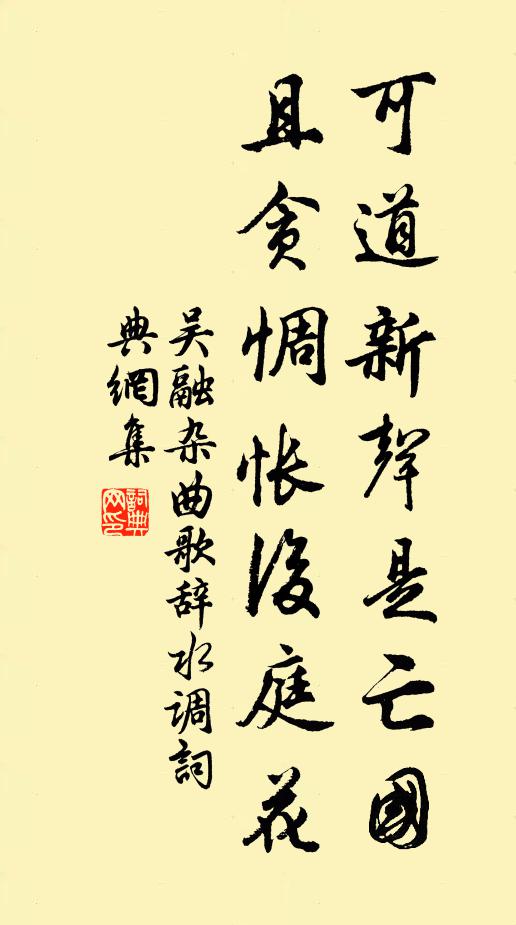 可道新聲是亡國
且贪惆怅後庭花
吴融杂曲歌辞水调詞
典網集
詞典网印